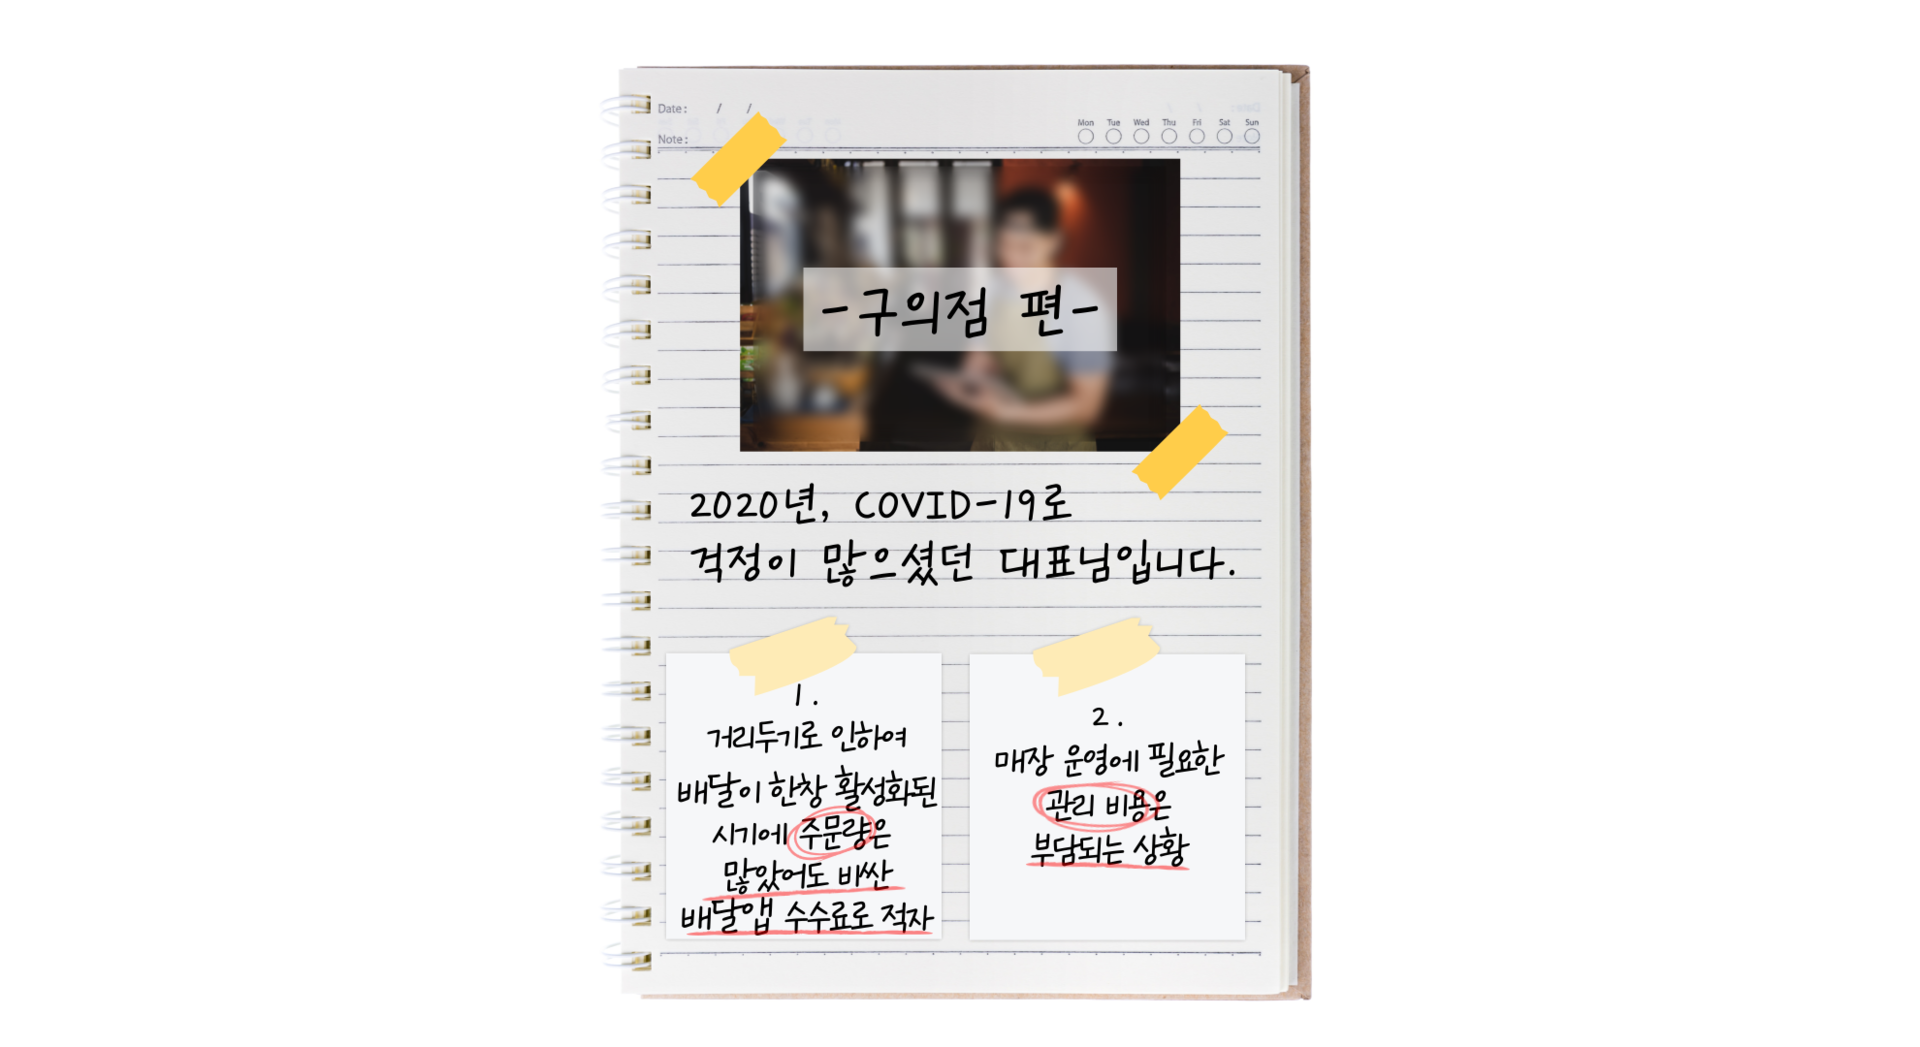 Date: / /
Note:
Mon Tue Wed Thu Fri Sat Sun
-구의점 편-
2020년, COVID-19로
걱정이 많으셨던 대표님입니다.
1.
거리두기로 인하여
배달이 한창 활성화된
시기에 주문량은
많았어도 비싼
배달앱 수수료로 적자
2.
매장 운영에 필요한
관리 비용은
부담되는 상황